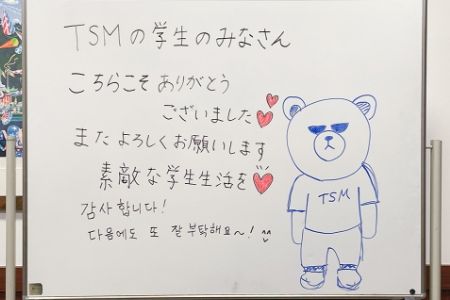 TSMの学生のみなさん
こちらこそ ありがとう
ございました
また よろしくお願いします
素敵な学生生活を
감사합니다!
다음에도 또 잘 부탁해요~! ^^
TSM